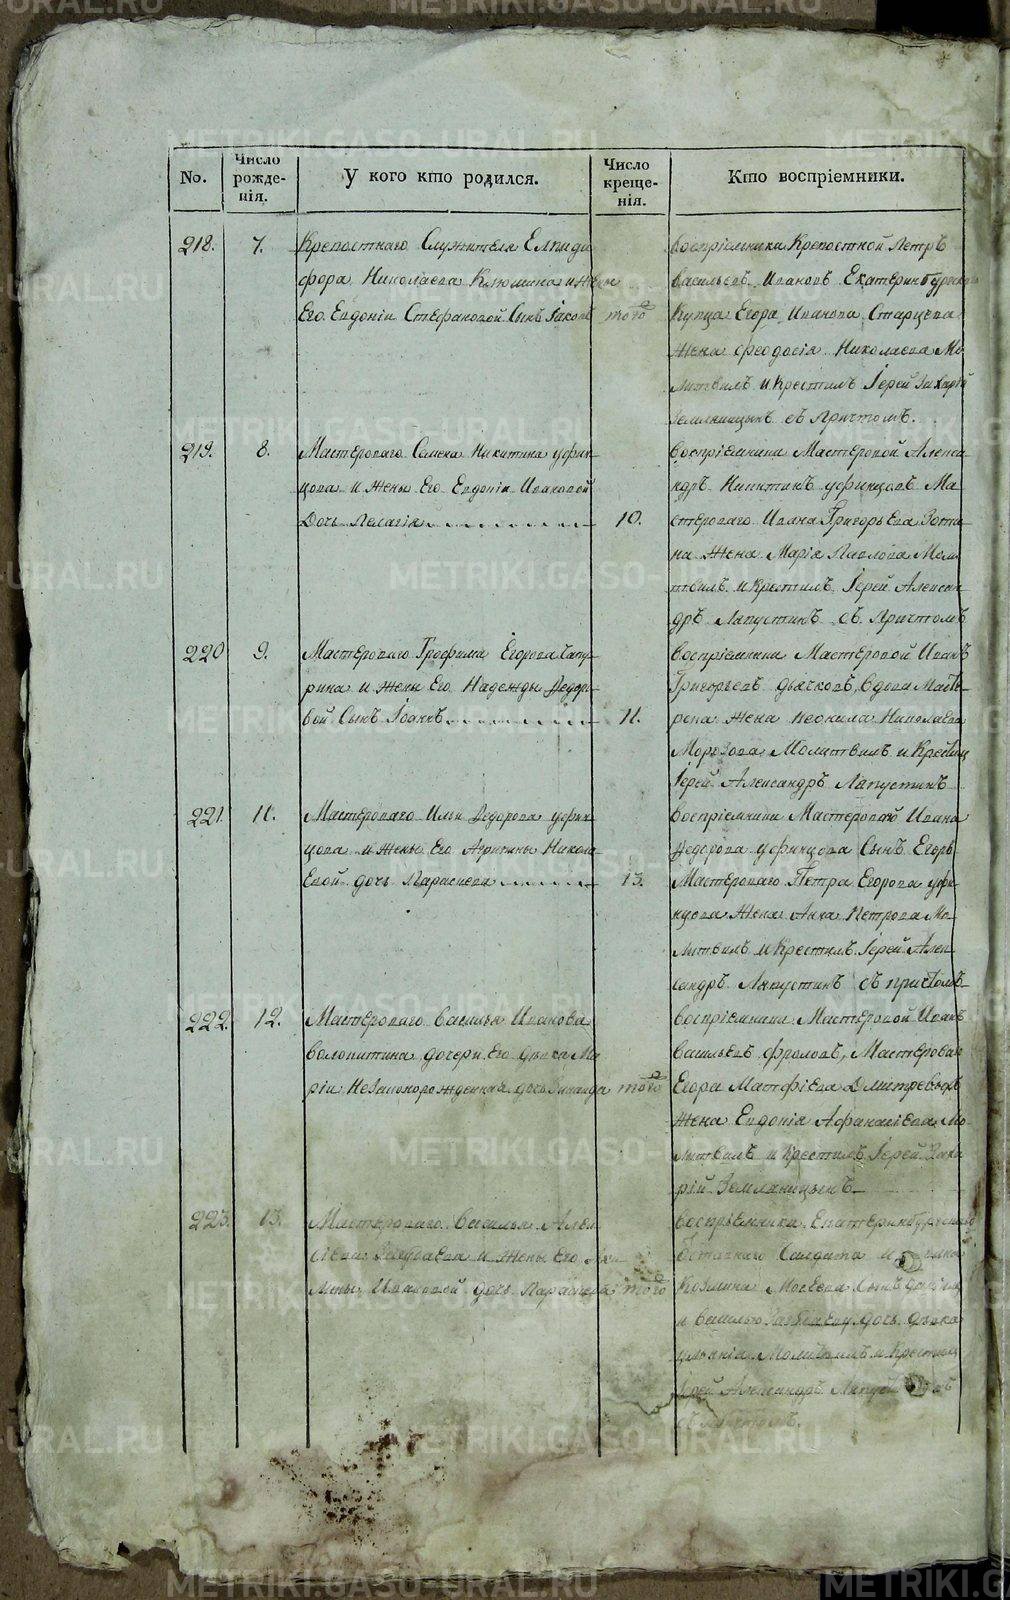 No.
Число рожде-нія.
У кого кто родился.
Число креще-нія.
Кто воспріемники.
218. 7.
Крепостнаго Служителя Елпиди
фора Николаева Клюшина и жены
Его Евдокіи Стефановой Сынъ Іаковъ того
воспріемники Крепостной Петръ
Васильевъ Ивановъ Екатеринбургскаго
Купца Егора Иванова Старцева
Жена Феодосія Николаева Мо
литвилъ и Крестилъ Іерей Захарій
Земляницынъ съ Причтомъ.
219. 8.
Мастероваго Семена Никитина уфин
цова и Жены Его Евдокіи Ивановой
Дочь Пелагія 10.
воспріемники Мастеровой Алекса
ндръ Никитинъ уфинцовъ Ма
стероваго Ивана Григорьева Зоти
на Жена Марія Павлова Моли
твилъ и Крестилъ Іерей Алексан
дръ Ляпустинъ съ Причтомъ
220 9.
Мастероваго Трофима Егорова
рина и Жены Его Надежды Федоро
вой Сынъ Іоаннъ 11.
воспріемники Мастеровой Иванъ
Григорьевъ дьячковъ, вдова Масте
рова Жена Неонила Николаева
Морозова Молитвилъ и Крестилъ
Іерей Александръ Ляпустинъ
221. 11.
Мастероваго Ильи Федорова уфин
цова и Жены Его Агрипины Никола
Евой дочь Параскева 13.
воспріемники Мастероваго Ивана
Федорова уфинцова Сынъ Егоръ
Мастероваго Петра Егорова уфи
нцова Жена Анна Петрова Мо
литвилъ и Крестилъ Іерей Алек
сандръ Ляпустинъ съ причтомъ
222. 12.
Мастероваго Василья Иванова
дочери Его девки Ма
ріи Незаконорожденная дочь Зинаида того
воспріемники Мастеровой Иванъ
Васильевъ Фроловъ, Мастероваго
Егора Матфіева Дмитревыхъ
Жена Евдокія Афанасіева Мо
литвилъ и Крестилъ Іерей Заха
рій Земляницынъ
223. 13.
Мастероваго Василья Алек
сіева и Жены Его
Ивановой дочь Параскева того
воспріемники Екатеринбургскаго
Солдата
Козмина Мосеева Сынъ
и Василью дочь девка
Молитвилъ и Крестилъ
Іерей Александръ Ляпустинъ
съ причтомъ.
METRIKI.GASO-URAL.RU